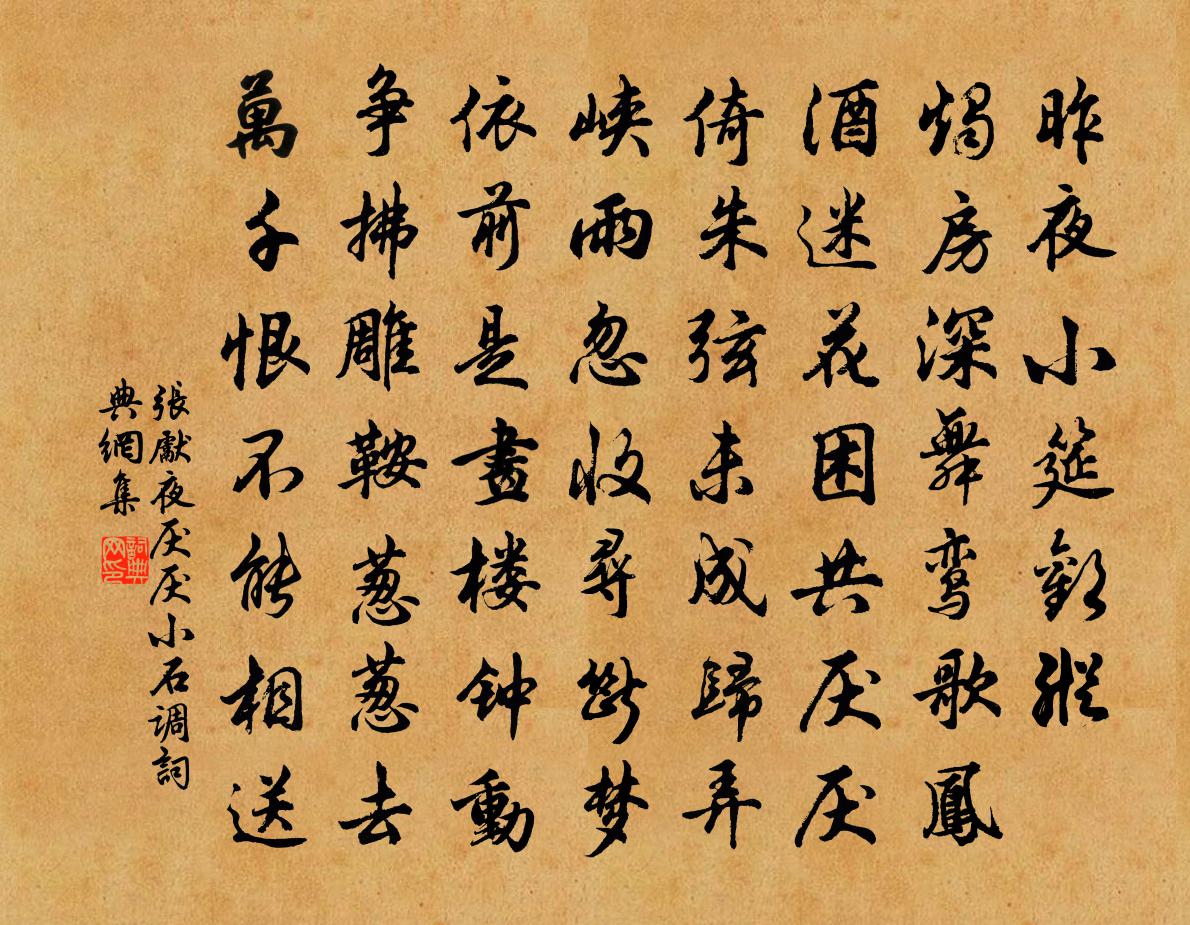 昨夜小筵歡縱
燭房深舞鸾歌鳳
酒迷花困共厌厌
倚朱弦未成歸弄
峡雨忽收尋断梦
依前是畫楼钟動
争拂雕鞍葱葱去
萬千恨不能相送
張獻夜厌厌小石调詞
典網集
詞典网印